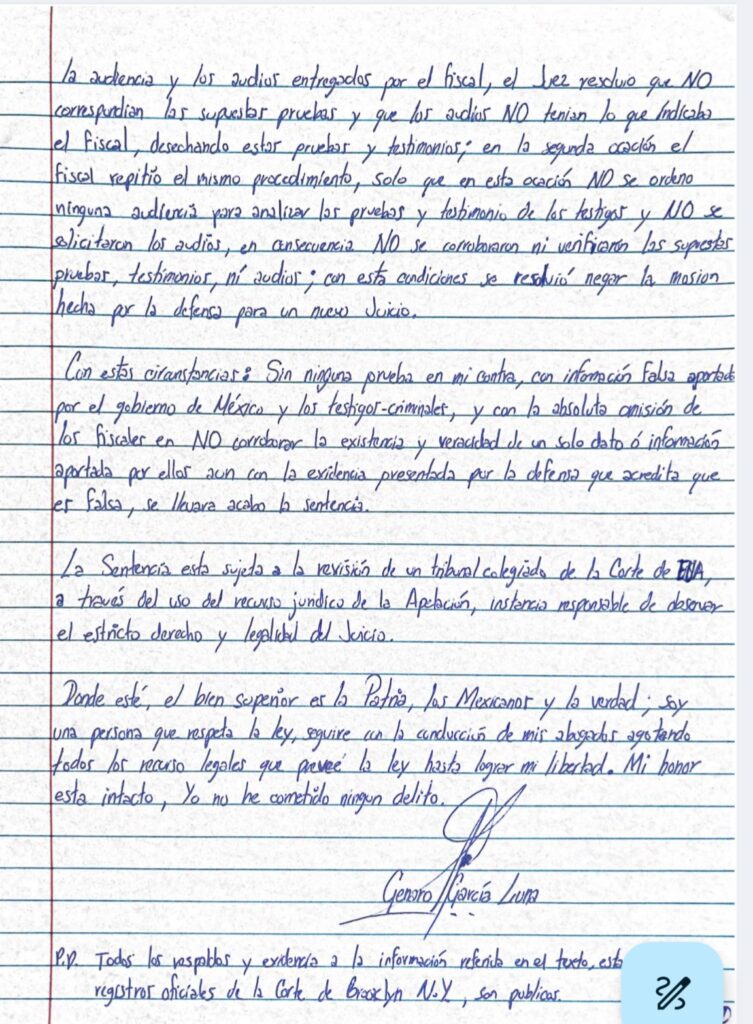 la audiencia y los audios entregados por el fiscal, el Juez resolvio que NO
correspondian las supuestas pruebas y que los audios NO tenian lo que indicaba
el Fiscal, desechando estas pruebas y testimonios; en la segunda ocación el
fiscal repitió el mismo procedimiento, solo que en esta ocación NO se ordeno
ninguna audiencia para analizar las pruebas y testimonio de los testigos y NO se
solicitaron los audios, en consecuencia NO se corroboraron ni verificaron las supuestas
pruebas, testimonios, ni audios; con esta condiciones se resolvió negar la mosion
hecha por la defensa para un nuevo Juicio.
Con estas circunstancias: Sin ninguna prueba en mi contra, con información Falsa aportada
por el gobierno de México y los testigos-criminales, y con la absoluta omisión de
los fiscales en NO corroborar la existencia y veracidad de un solo dato ó información
aportada por ellos aun con la evidencia presentada por la defensa que acredita que
es falsa, se llevara acabo la sentencia.
La Sentencia esta sujeta a la revisión de un tribunal colegiado de la Corte de EUA,
a través del uso del recurso jurídico de la Apelación, instancia responsable de observar
el estricto derecho y legalidad del Juicio.
Donde esté, el bien superior es la Patria, los Mexicanos y la verdad; soy
una persona que respeta la ley, seguire con la conducción de mis abogados agotando
todos los recurso legales que preveé la ley hasta lograr mi libertad. Mi honor
esta intacto, Yo no he cometido ningun delito.
Genaro García Luna
P.D. Todos los respaldos y evidencia a la información referida en el texto, esta
registros oficiales de la Corte de Brooklyn N.Y, son publicas.